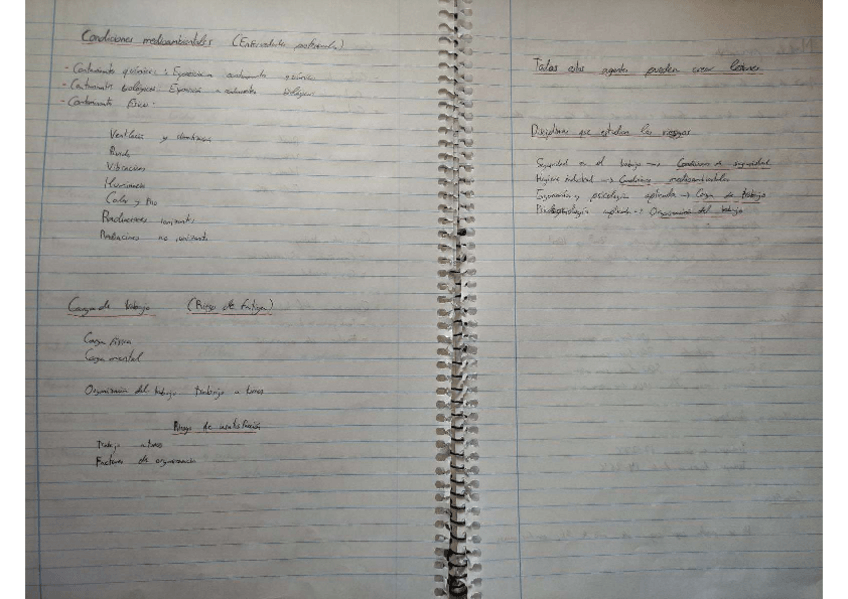 Condiciones medioambientales (Enfermedades profesionales)
- Contaminante químico: Exposición contaminante químico
- Contaminante biológico: Exposición a contaminantes biológicos
- Contaminante físico:
Ventilación y
Ruido
Vibraciones
Calor y frío
Radiaciones ionizantes
Radiaciones no ionizantes
Carga de trabajo (Riesgo de fatiga)
Carga física
Carga mental
Organización del trabajo Trabajo a turnos
Riesgo de insatisfacción
Trabajo a turnos
Factores de organización
Todos estos agentes pueden crear lesiones
Disciplinas que estudian los riesgos
Seguridad en el trabajo → Condiciones de seguridad
Higiene industrial → Condiciones medioambientales
Ergonomía y psicología aplicada → Carga de trabajo
aplicada → Organización del trabajo